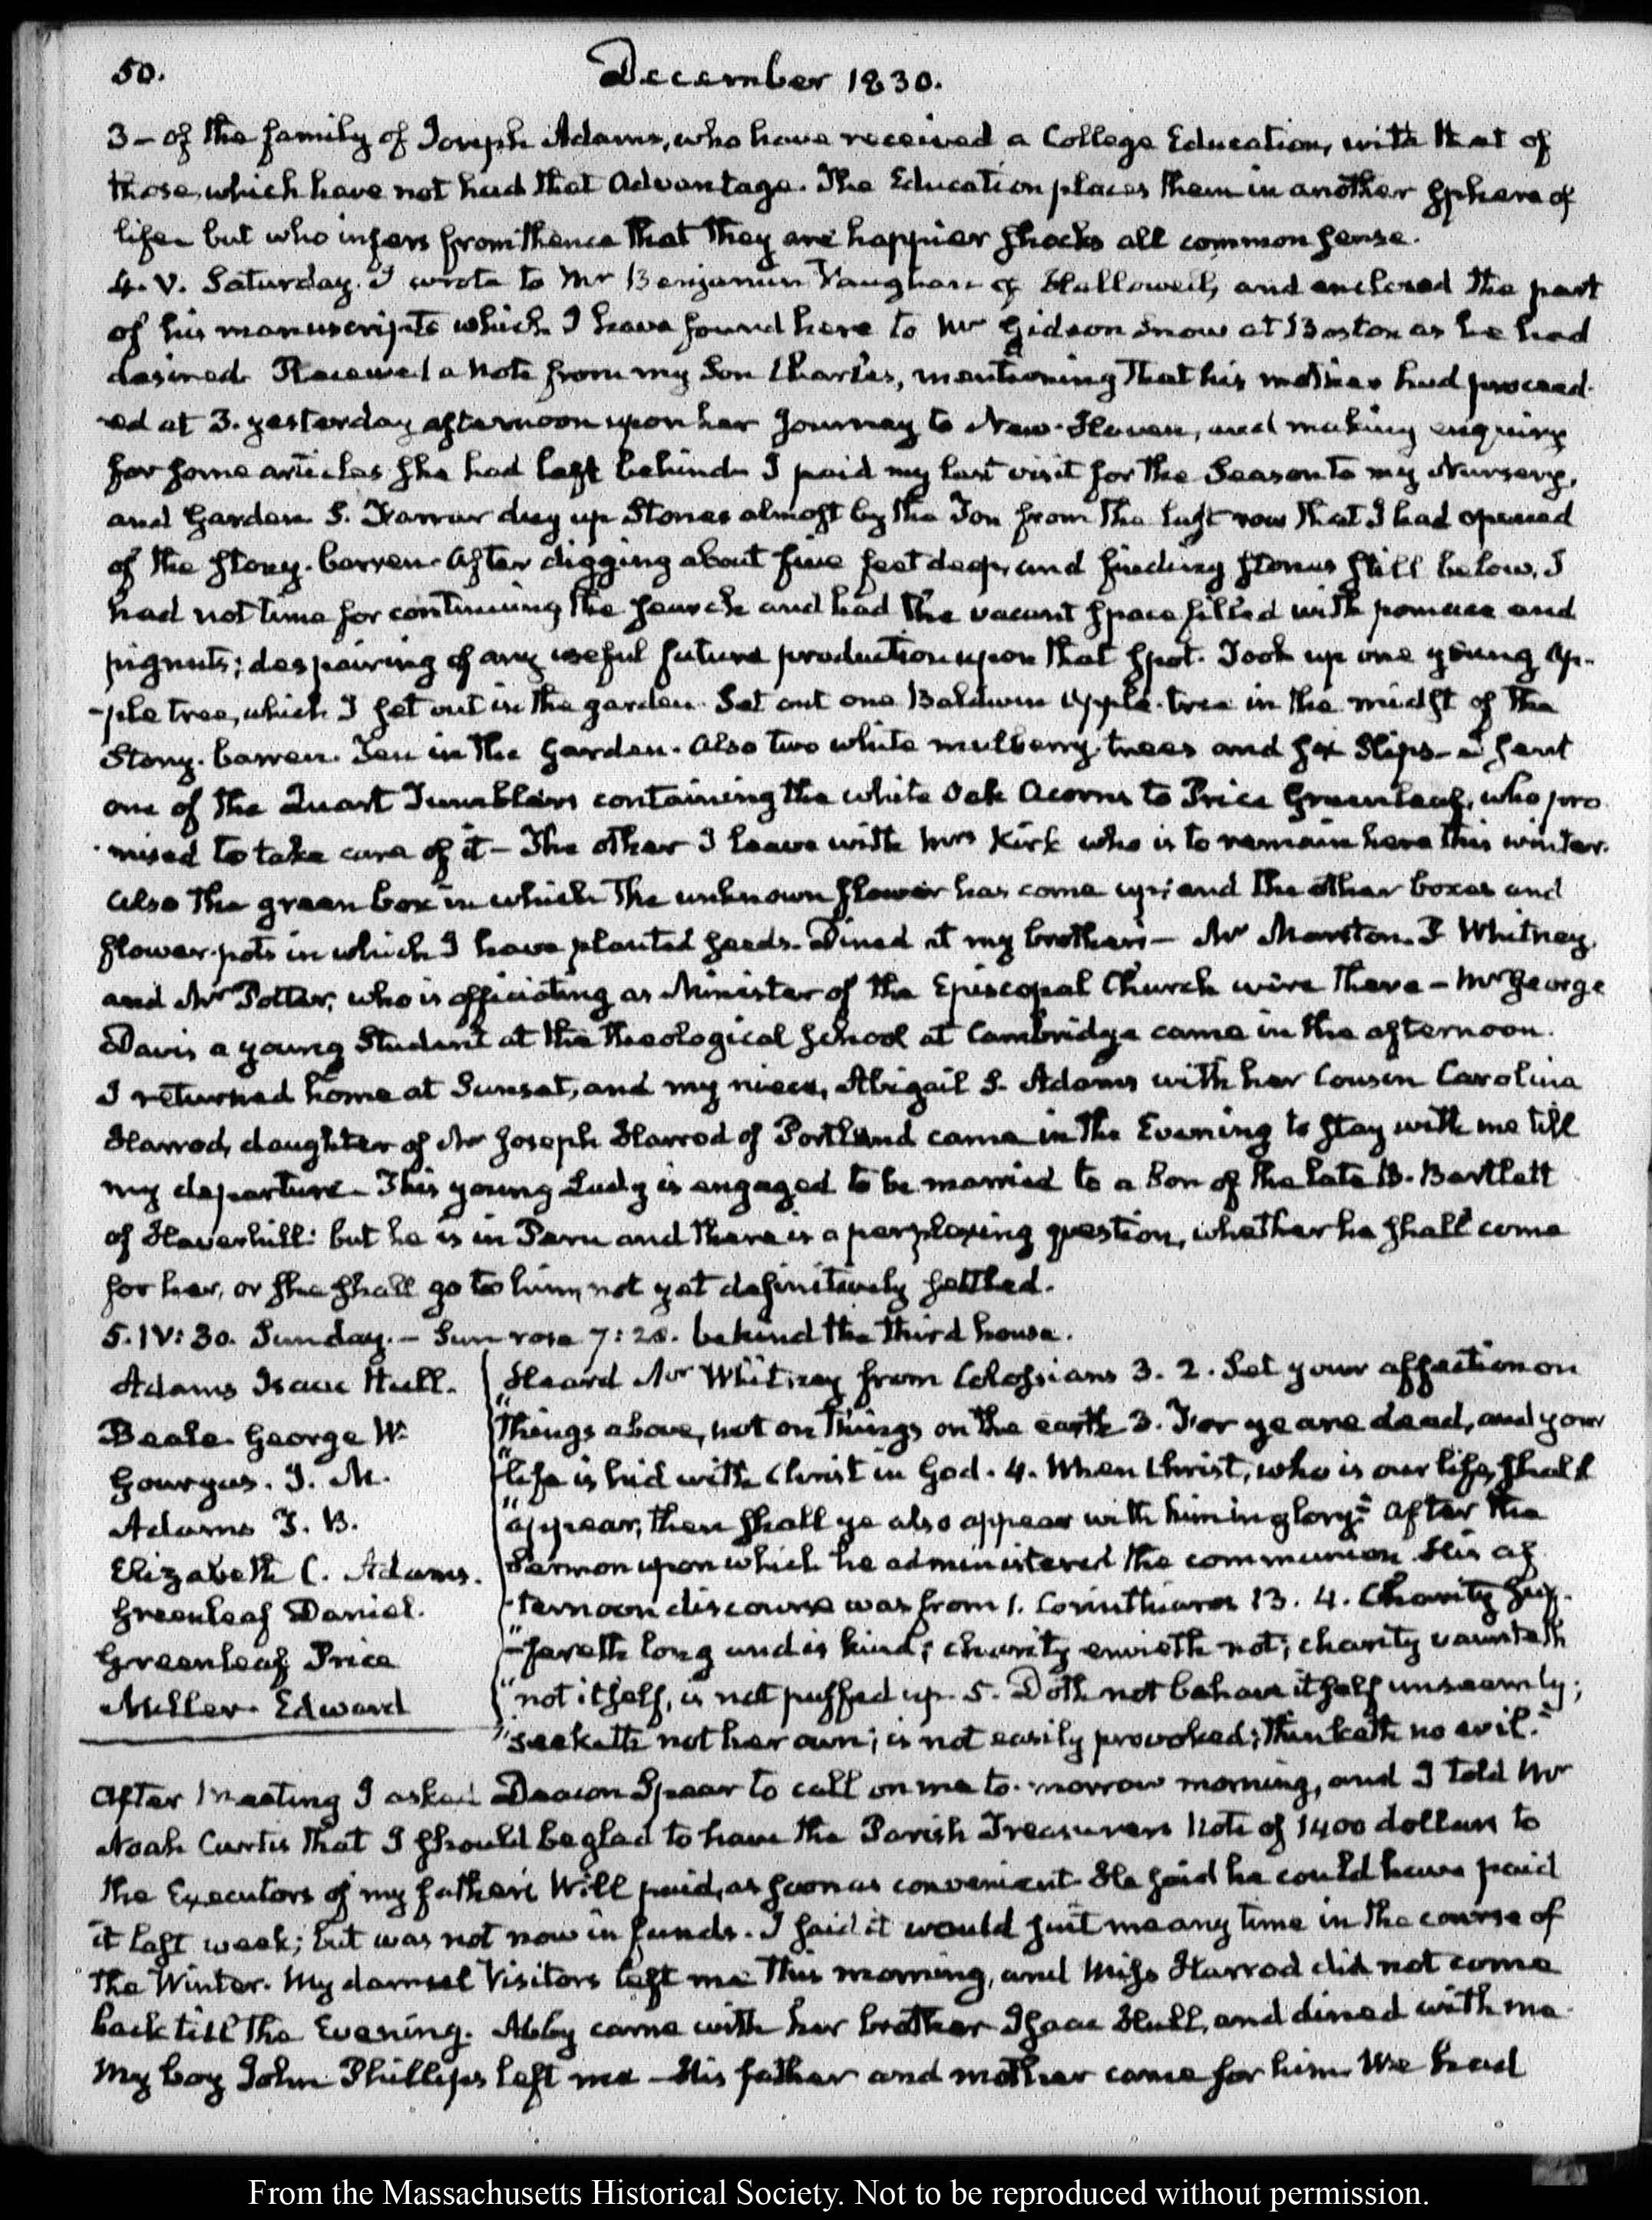 50.
December 1830.
3– of the family of Joseph Adams, who have received a College Education, with that of
those, which have not had that advantage. The Education places them in another sphere of
life– but who infers from thence that they are happier shocks all common sense.
4. V. Saturday. I wrote to Mr Benjamin Vaughan of Hallowell, and enclosed the part
of his manuscripts which I have found here to Mr Gideon Snow at Boston as he had
desired. Received a Note from my Son Charles, mentioning that his mother had proceed-
-ed at 3. yesterday afternoon upon her journey to New-Haven, and making enquiry
for some articles she had left behind. I paid my last visit for the Season to my Nursery,
and Garden. S. Farrar dug up Stones almost by the Ton from the last row that I had opened
of the stony-barren. After digging about five feet deep, and finding stones still below, I
had not time for continuing the search and had the vacant space filled with pomace and
pignuts; despairing of any useful future production upon that spot. Took up one young ap-
-ple tree, which I set out in the garden. Set out one Baldwin apple-tree in the midst of the
Stony-barren. Ten in the Garden. Also two white mulberry trees and six Slips– I sent
one of the Quart Tumblers containing the white Oak Acorns to Price Greenleaf, who pro-
-mised to take care of it– The other I leave with Mrs Kirk who is to remain here this winter.
Also the green box in which the unknown flower has come up; and the other boxes and
flower-pots in which I have planted seeds. Dined at my brother's– Mr Marston. F Whitney,
and Mr Potter, who is officiating as Minister of the Episcopal Church were there– Mr George
Davis a young Student at the theological school at Cambridge came in the afternoon.
I returned home at Sunset, and my niece, Abigail S. Adams with her Cousin Carolina
Harrod, daughter of Mr Joseph Harrod of Portland came in the Evening to stay with me till
my departure– This young Lady is engaged to be married to a Son of the late B. Bartlett
of Haverhill: but he is in Peru and there is a perplexing question, whether he shall come
for her, or she shall go to him, not yet definitively settled.
5. IV: 30. Sunday.– Sun rose 7:28. behind the third house.
Adams Isaac Hull.
Beale. George W.
Gourgas. J. M.
Adams J. B.
Elizabeth C. Adams.
Greenleaf Daniel.
Greenleaf Price
Miller. Edward
Heard Mr Whitney from Colossians 3. 2. Set your affection on
"things above, not on things on the earth 3. For ye are dead, and your
"life is hid with Christ in God. 4. When Christ, who is our life, shall
"appear, then shall ye also appear with him in glory" After the
Sermon upon which he administered the communion. His af-
-ternoon discourse was from 1. Corinthians 13. 4. Charity suf-
"-fereth long and is kind; charity envieth not; charity vaunteth
"not itself, is not puffed up. 5. Doth not behave itself unseemly;
"seeketh not her own; is not easily provoked; thinketh no evil."
After Meeting I asked Deacon Spear to call on me to-morrow morning, and I told Mr
Noah Curtis that I should be glad to have the Parish Treasurers Note of 1400 dollars to
the Executors of my father's Will paid, as soon as convenient. He said he could have paid
it last week; but was not now in funds. I said it would suit me any time in the course of
the Winter. My damsel Visitors left me this morning, and Miss Harrod did not come
back till the Evening. Abby came with her brother Isaac Hull, and dined with me.
My boy John Phillips left me– His father and mother came for him. We had
From the Massachusetts Historical Society. Not to be reproduced without permission.